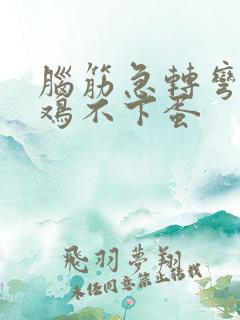 腦筋急轉彎
雞不下蛋
飛羽夢翔
未經同意禁止轉載